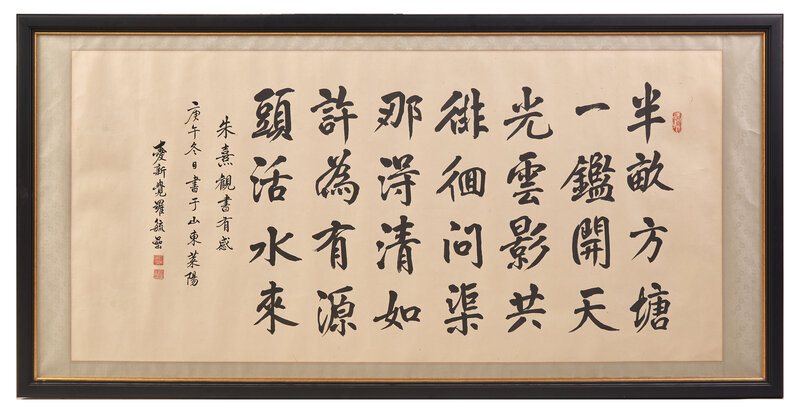 半畝方塘
一鑑開天
光雲影共
徘徊問渠
那得清如
許為有源
頭活水來
朱熹觀書有感
庚午冬日書于山東萊陽
愛新覺羅毓